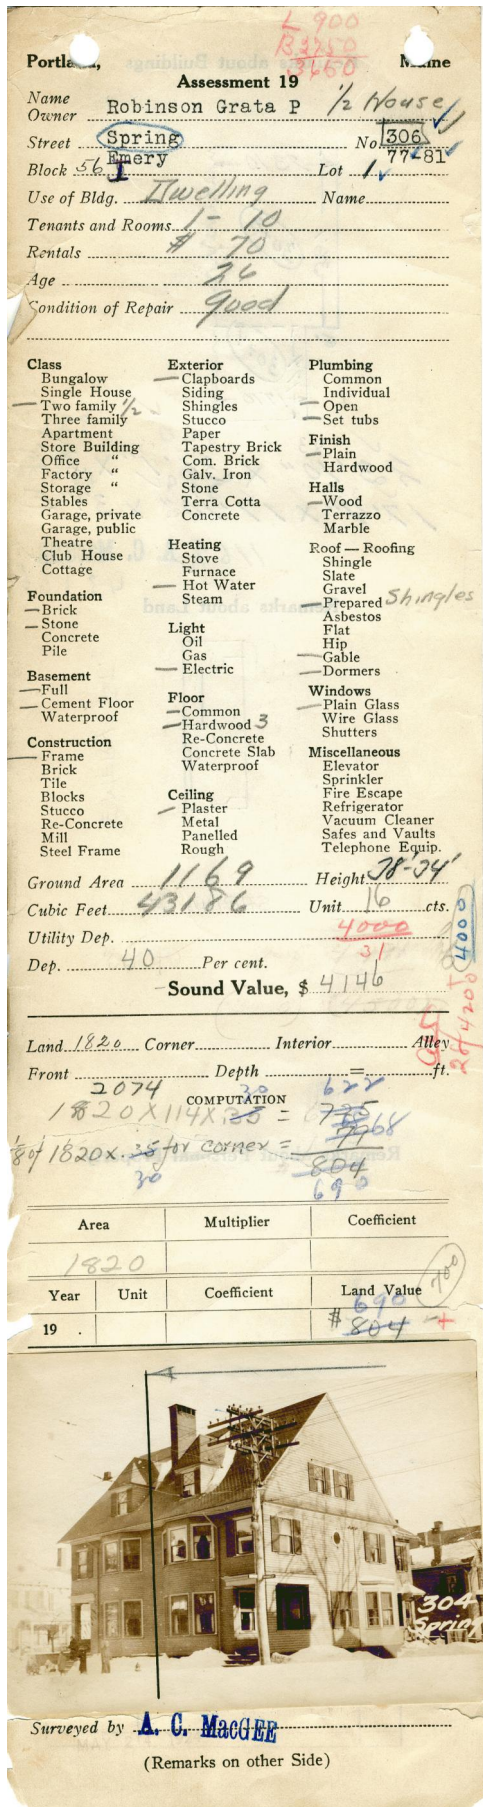 L 900
B 2750
3650
Portland, Maine
Assessment 19
Name
Owner Robinson Grata P 1/2 House
Street Spring No 306
Emery 77-81
Block 56 I Lot 1
Use of Bldg. Dwelling Name
Tenants and Rooms 1- 10
Rentals $ 70
Age 26
Condition of Repair good
Class
Bungalow
Single House
Two family 1/2
Three family
Apartment
Store Building
Office "
Factory "
Storage "
Stables
Garage, private
Garage, public
Theatre
Club House
Cottage
Foundation
Brick
Stone
Concrete
Pile
Basement
Full
Cement Floor
Waterproof
Construction
Frame
Brick
Tile
Blocks
Stucco
Re-Concrete
Mill
Steel Frame
Exterior
Clapboards
Siding
Shingles
Stucco
Paper
Tapestry Brick
Com. Brick
Galv. Iron
Stone
Terra Cotta
Concrete
Heating
Stove
Furnace
Hot Water
Steam
Light
Oil
Gas
Electric
Floor
Common
Hardwood 3
Re-Concrete
Concrete Slab
Waterproof
Ceiling
Plaster
Metal
Panelled
Rough
Plumbing
Common
Individual
Open
Set tubs
Finish
Plain
Hardwood
Halls
Wood
Terrazzo
Marble
Roof — Roofing
Shingle
Slate
Gravel
Prepared Shingles
Asbestos
Flat
Hip
Gable
Dormers
Windows
Plain Glass
Wire Glass
Shutters
Miscellaneous
Elevator
Sprinkler
Fire Escape
Refrigerator
Vacuum Cleaner
Safes and Vaults
Telephone Equip.
Ground Area 1169 Height 38'-34'
Cubic Feet 43186 Unit 16 cts.
Utility Dep. 4000
31
4000
Dep. 40 Per cent.
Sound Value, $ 4146
Land 1820 Corner Interior Alley
Front Depth = ft.
2074
COMPUTATION 30 622
1820 X 114 X 35 = 725
68
1/8 of 1820 x .35 for corner = 79
30 804
690
Area Multiplier Coefficient
1820
Year Unit Coefficient Land Value
700
690
19 . $ 804
304
Spring
Surveyed by A. C. MacGEE
(Remarks on other Side)